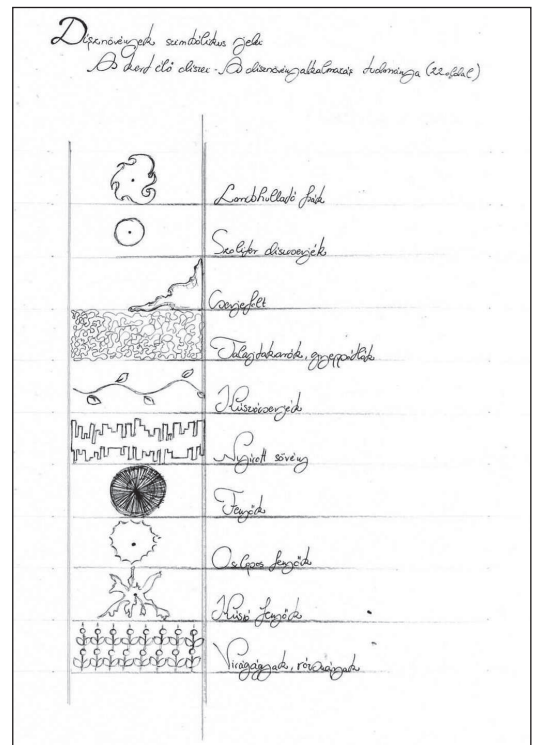 Dísznövények szimbólikus jelei
A kert élő díszei - A dísznövényalkalmazás tudománya (22. oldal)
Lombhullató fák
Szoliter díszcserjék
Cserjefolt
Talajtakarók, gyeppótlók
Kúszócserjék
Nyírott sövény
Fenyők
Oszlopos fenyők
Kúszó fenyők
Virágágyak, rózsaágyak